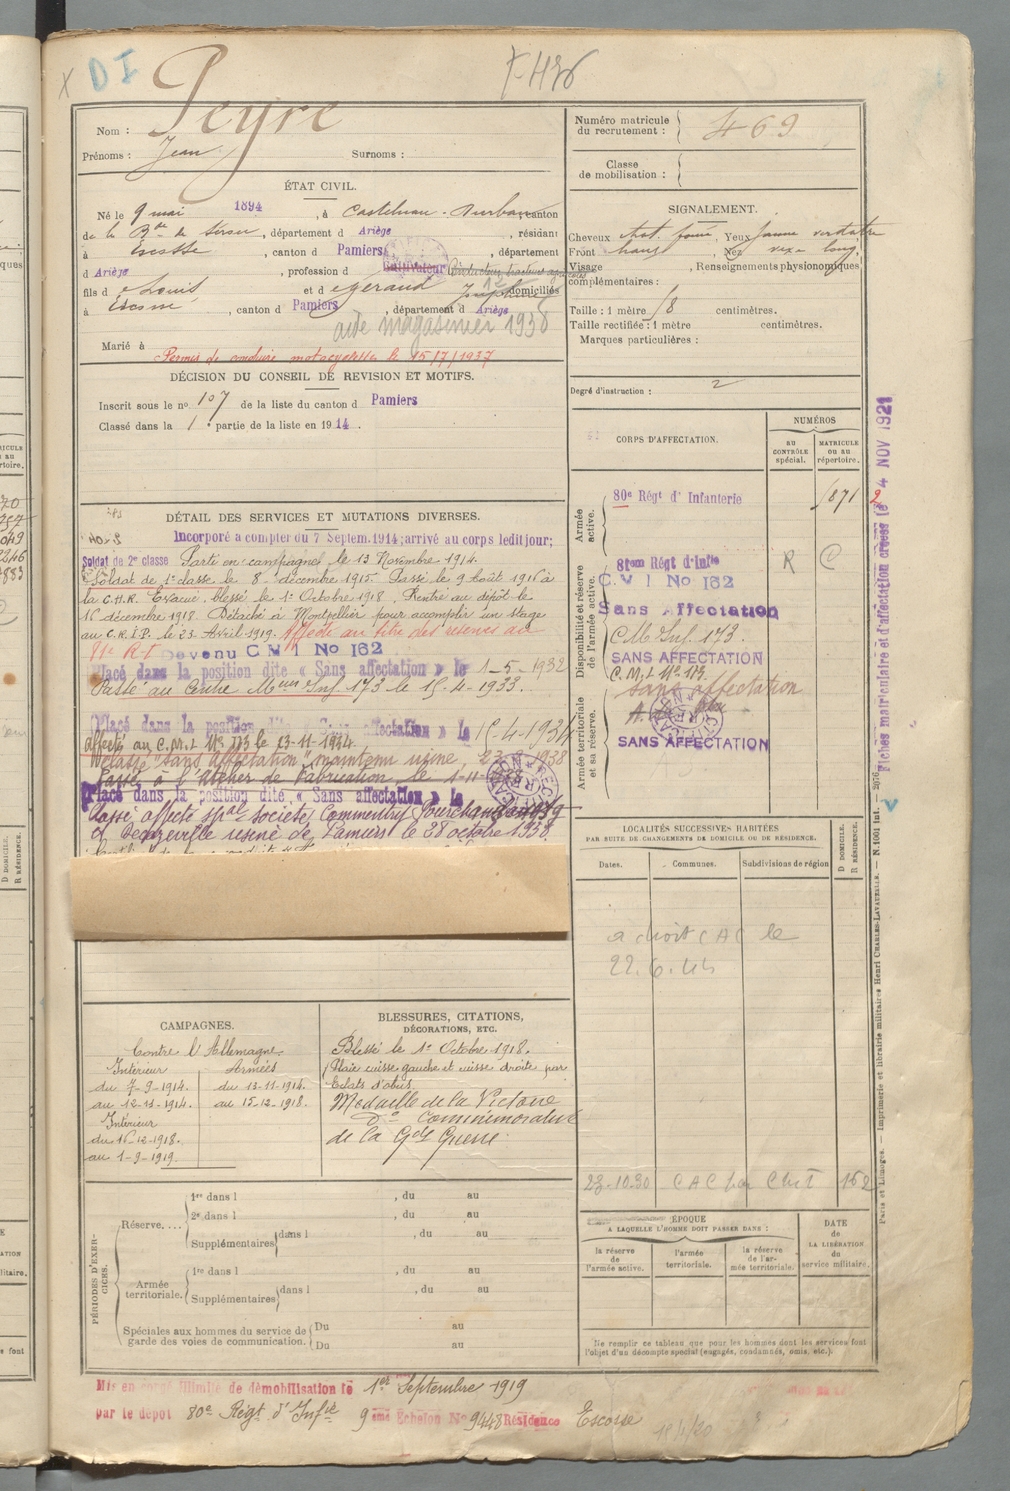 X DI
F-436
Nom : Peyre
Prénoms : Jean Surnoms :
ÉTAT CIVIL.
Né le 9 mai 1894, à Castelnau-Durban, canton
de la Bde de Sérou, département d Ariège, résidant
à Escosse, canton d Pamiers, département
d Ariège, profession d Cultivateur Conducteur tracteur
fils d e Louis et d e domiciliés
à Escosse, canton d Pamiers, département d Ariège
aide magasinier 1938
Marié à
Permis de conduire motocyclette le 15/7/1937
DÉCISION DU CONSEIL DE REVISION ET MOTIFS.
Inscrit sous le no 107 de la liste du canton d Pamiers
Classé dans la 1e partie de la liste en 1914.
DÉTAIL DES SERVICES ET MUTATIONS DIVERSES.
Incorporé a compter du 7 Septem. 1914; arrivé au corps ledit jour;
Soldat de 2e classe Parti en campagne le 13 Novembre 1914.
Soldat de 1e classe le 8 décembre 1915. Passé le 9 Août 1916 à
la C.H.R. Evacué, blessé le 1er Octobre 1918. Rentré au dépôt le
16 décembre 1918. Détaché à Montpellier pour accomplir un stage
au C.R.I.P. le 23 Avril 1919. Affecté au titre des réserves au
81e R.I. Devenu C M I No 162
Placé dans la position dite « Sans affectation » le 1-5-1932
Passé au Centre Mon Inf 173 le 15-4-1933.
Placé dans la position dite « Sans affectation » le 15-4-1934
affecté au C.M.I. No 173 le 13-11-1934
Reclassé "sans affectation" maintenu usine, 1938
Passé à l'Atelier de Fabrication le 1-11
Placé dans la position dite « Sans affectation » le
Classé affecté spal Société Commentry Fourchambault
et Decazeville usine de Pamiers le 28 octobre 1938.
CAMPAGNES.
Contre l'Allemagne.
Intérieur Armées
du 7-9-1914. du 13-11-1914.
au 12-11-1914. au 15-12-1918.
Intérieur
du 16-12-1918.
au 1-9-1919.
BLESSURES, CITATIONS,
DÉCORATIONS, ETC.
Blessé le 1er Octobre 1918.
Plaie cuisse gauche et cuisse droite par
Eclats d'obus.
Médaille de la Victoire
do Commémorative
de la Gde Guerre.
PÉRIODES D'EXERCICES.
Réserve....
1re dans l , du au
2e dans l , du au
Supplémentaires dans l , du au
Armée territoriale.
1re dans l , du au
Supplémentaires dans l , du au
Spéciales aux hommes du service de garde des voies de communication.
Du au
Du au
Mis en congé illimité de démobilisation le 1er Septembre 1919
par le dépot 80e Régt d'Infie 9 ème Echelon No 9448 Résidence Escosse
18/1/20
Numéro matricule
du recrutement : 469
Classe
de mobilisation :
SIGNALEMENT.
Cheveux chat. foncé, Yeux jaune verdâtre
Front, Nez long,
Visage, Renseignements physionomiques
complémentaires :
Taille : 1 mètre 78 centimètres.
Taille rectifiée : 1 mètre centimètres.
Marques particulières :
Degré d'instruction : 2
CORPS D'AFFECTATION.
NUMÉROS
AU CONTRÔLE spécial.
MATRICULE OU AU répertoire.
Armée active.
80e Régt d'Infanterie 1871
Disponibilité et réserve de l'armée active.
81eme Régt d'Infie R C
C M I No 162
Sans Affectation
C M Inf. 173.
SANS AFFECTATION
C.M.I. No 173.
Armée territoriale et sa réserve.
Sans affectation
SANS AFFECTATION
LOCALITÉS SUCCESSIVES HABITÉES
PAR SUITE DE CHANGEMENTS DE DOMICILE OU DE RÉSIDENCE.
Dates.
Communes.
Subdivisions de région
D DOMICILE.
R RÉSIDENCE.
a droit CAC le
22.6.44
23-10.30 CAC par 162
ÉPOQUE
A LAQUELLE L'HOMME DOIT PASSER DANS :
la réserve de l'armée active.
l'armée territoriale.
la réserve de l'armée territoriale.
DATE
de
LA LIBÉRATION
du
service militaire.
Ne remplir ce tableau que pour les hommes dont les services font
l'objet d'un décompte spécial (engagés, condamnés, omis, etc.).
Fiches matriculaire et d'affectation créées le 24 NOV 1921
Paris et Limoges. — Imprimerie et librairie militaires Henri CHARLES-LAVAUZELLE. — N. 1001 int. — 2976